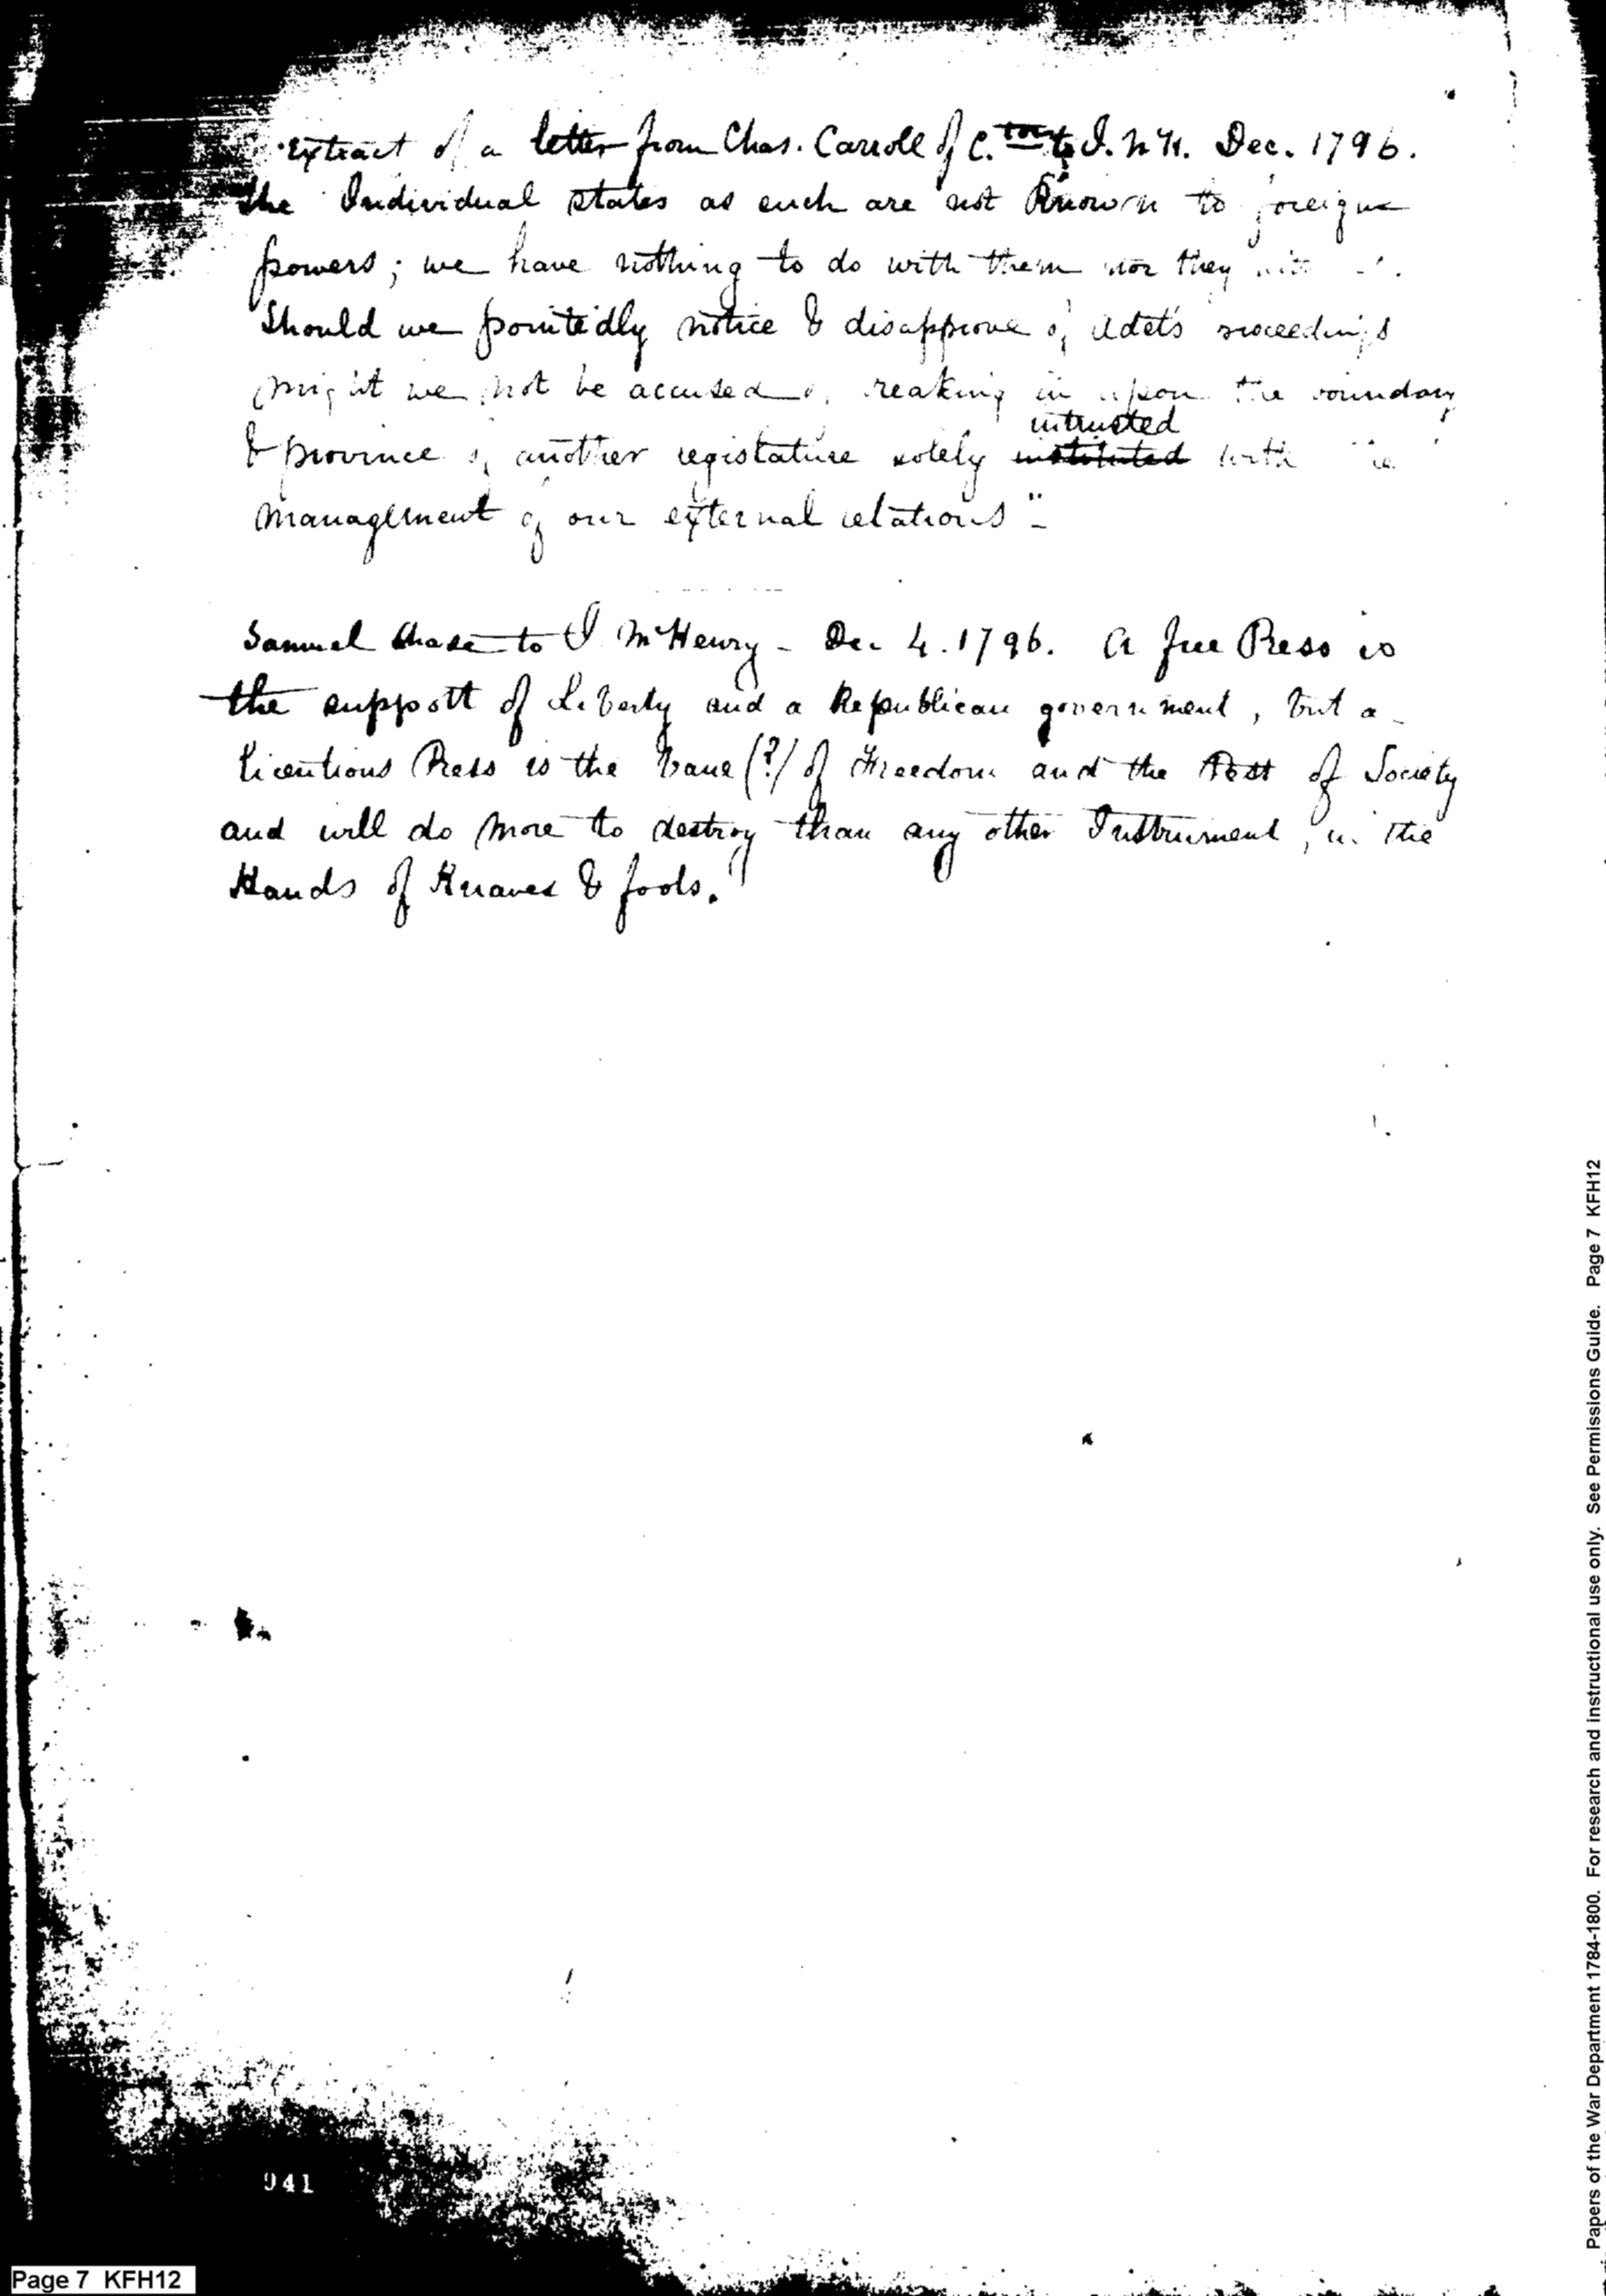 Extract of a letter from Chas. Carroll of C. to J. McH. Dec. 1796.
the Individual states as such are not Known to foreign
powers; we have nothing to do with them nor they with
Should we pointedly notice & disapprove of Adet's proceedings
might we not be accused of breaking in upon the boundary
& province of another legislature solely intrusted instituted with the
management of our external relations" -
Samuel Chase to J McHenry - Dec 4. 1796. A free Press is
the support of Liberty and a Republican government, but a
licentious Press is the bane (?) of Freedom and the Pest of Society
and will do more to destroy than any other Instrument, in the
Hands of Knaves & fools.
941
Page 7 KFH12
Papers of the War Department 1784-1800. For research and instructional use only. See Permissions Guide. Page 7 KFH12